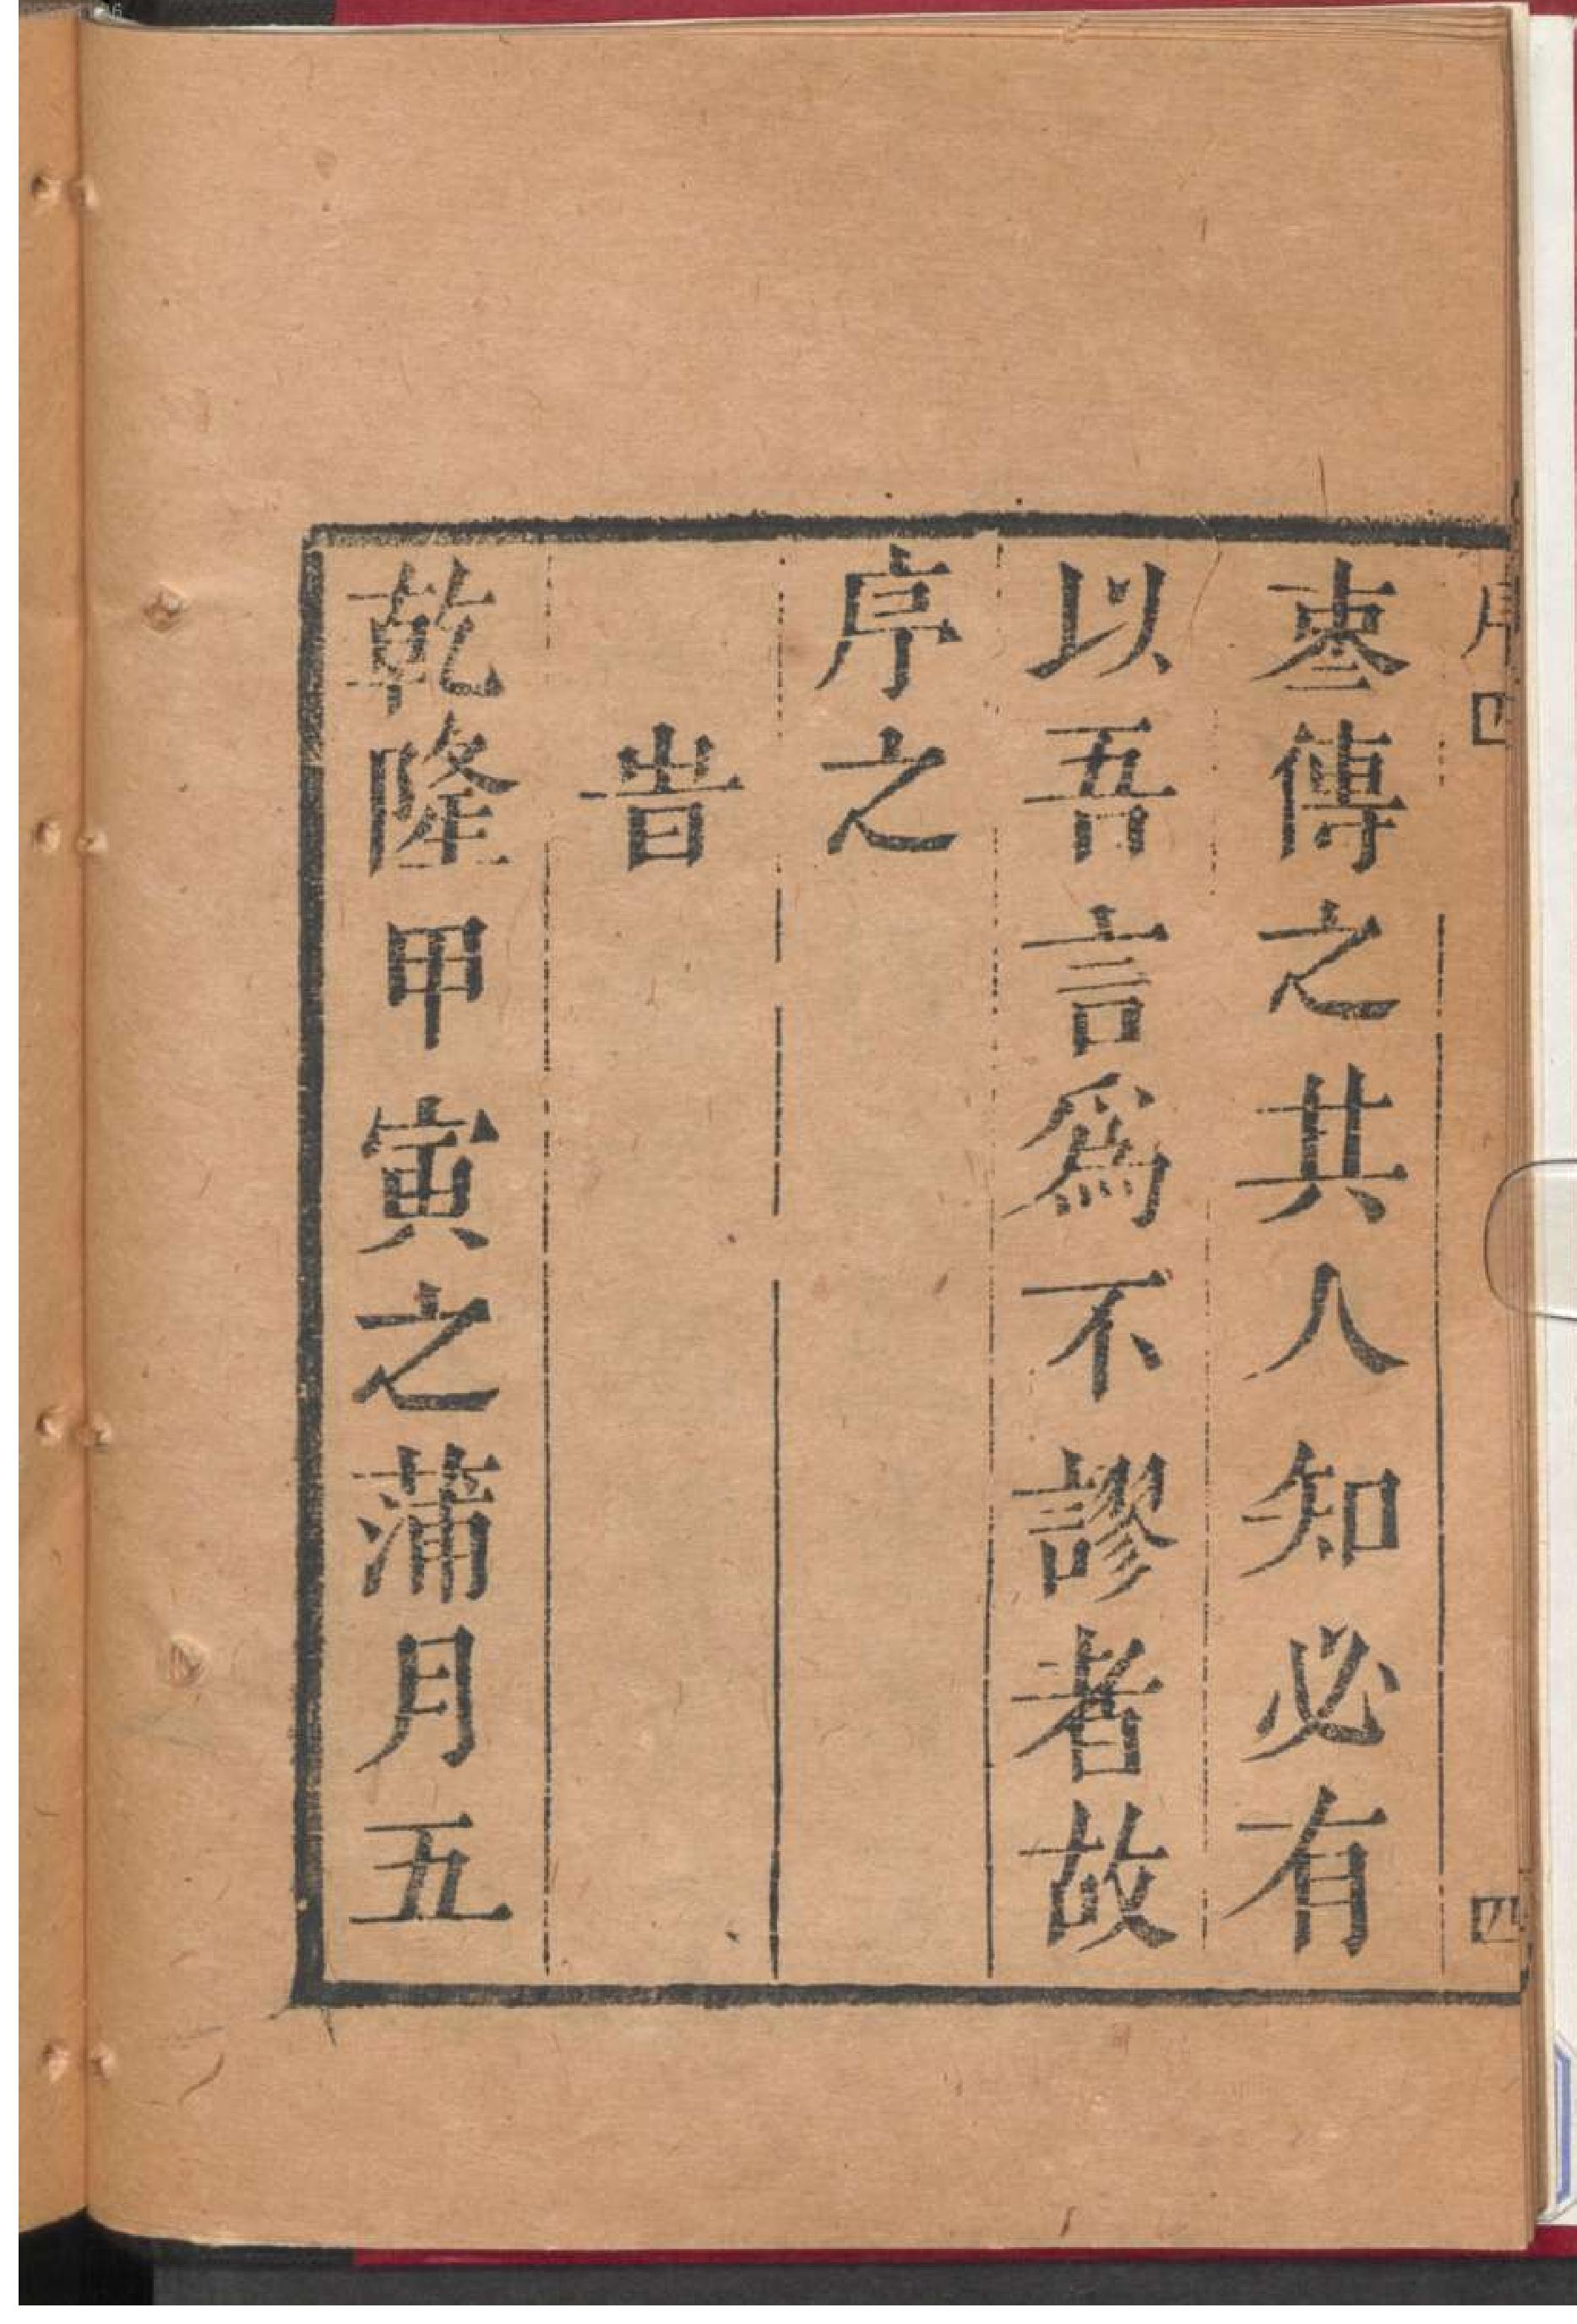 序四 四
枣傳之其人知必有
以吾言爲不謬者故
序之
旹
乾隆甲寅之蒲月五